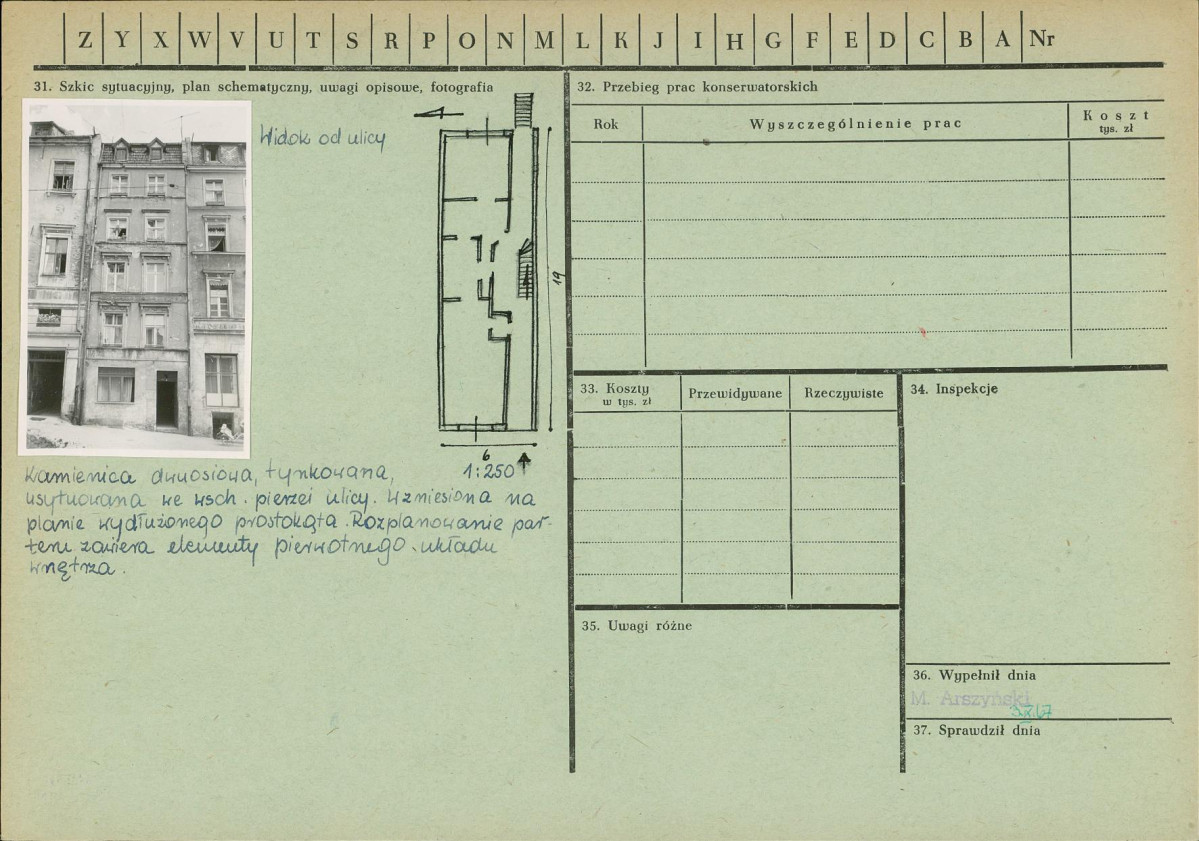 Z Y X W V U T S R P O N M L K J I H G F E D C B A Nr
31. Szkic sytuacyjny, plan schematyczny, uwagi opisowe, fotografia
Widok od ulicy
19
6
1:250
Kamienica dwuosiowa, tynkowana,
usytuowana we wsch. pierzei ulicy. Wzniesiona na
planie wydłużonego prostokąta. Rozplanowanie par-
teru zawiera elementy pierwotnego układu
wnętrza.
32. Przebieg prac konserwatorskich
Rok
Wyszczególnienie prac
Koszt
tys. zł
33. Koszty
w tys. zł
Przewidywane
Rzeczywiste
34. Inspekcje
35. Uwagi różne
36. Wypełnił dnia
M. Arszyński
37. Sprawdził dnia